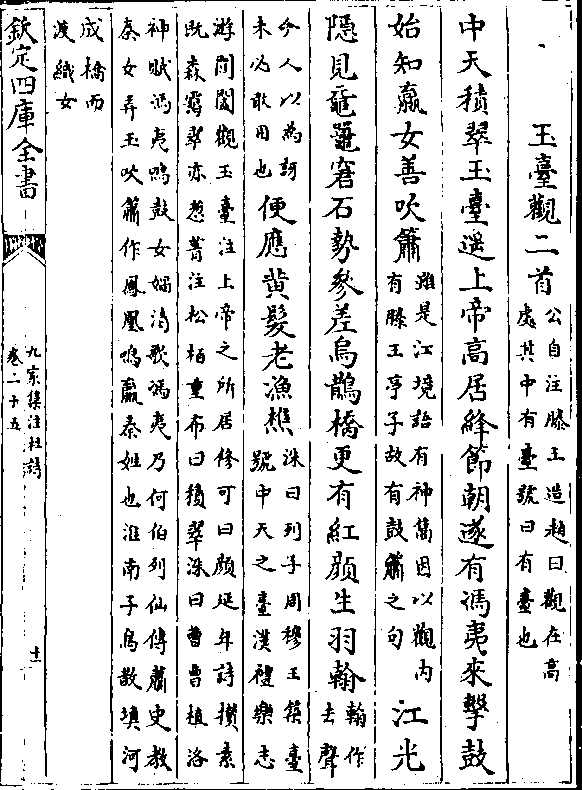 玉臺觀二首
公自注滕王造趙曰觀在高
處其中有臺號曰有臺也
中天積翠玉臺遥上帝高居絳節朝遂有馮夷來擊鼓
始知嬴女善吹簫
雖是江境詒有神萬因以觀内
有滕王亭子故有鼓簫之句
江光
隱見黿鼉窟石勢參差烏鵲橋更有紅顔生羽翰
翰作
去聲
今人以為韻
未必敢用也
便應黄髮老漁樵
洙曰列子周穆王築臺
號中天之臺漢禮樂志
游閶闔觀玉臺注上帝之所居修可曰顔延年詩攢素
既森藹翠亦葱菁注松栢重布曰積翠洙曰曹曹植洛
神賦馮夷鳴鼓女媧清歌馮夷乃何伯列仙傳蕭史教
秦女弄玉吹簫作鳳凰鳴嬴秦姓也淮南子烏散填河
成橋而
渡織女
欽定四庫全書
九家集注杜詩
卷二十五
十一